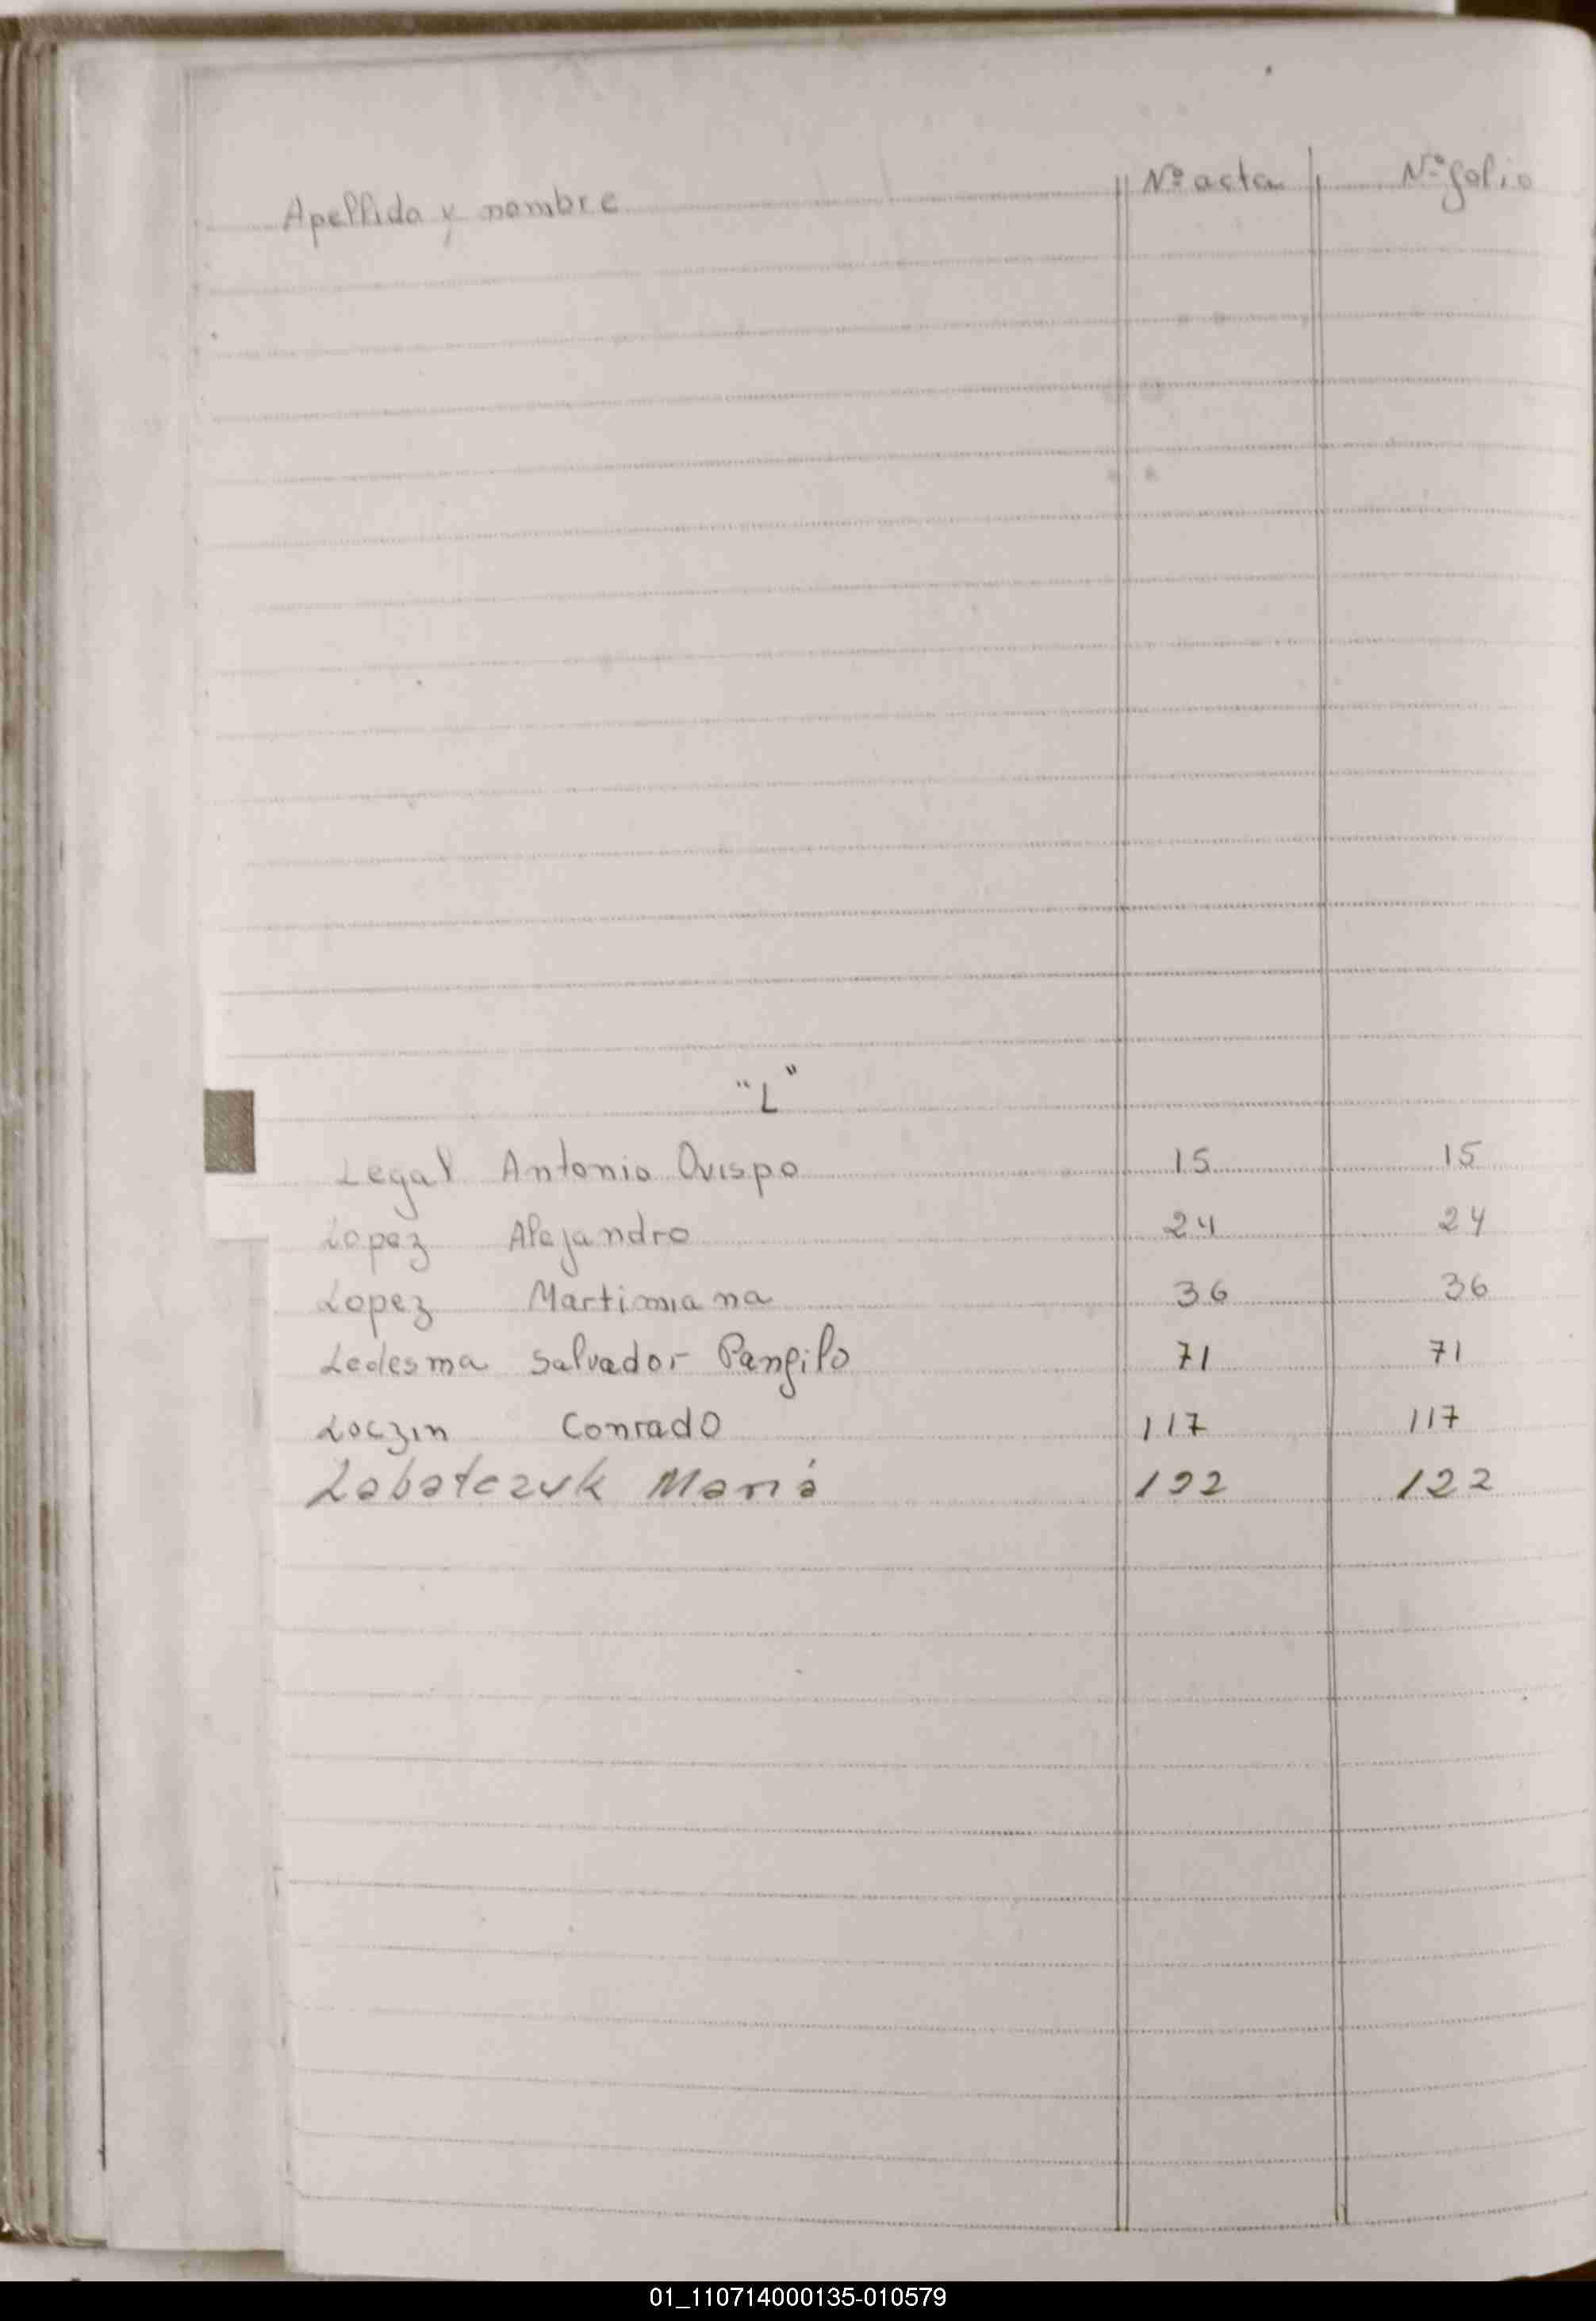 Apellido y nombre Nº acta Nº folio
"L"
Legal Antonio Ovispo 15 15
Lopez Alejandro 24 24
Lopez Martimiana 36 36
Ledesma Salvador Panfilo 71 71
Loczin Conrado 117 117
Labatczuk Mariá 122 122
01_110714000135-010579